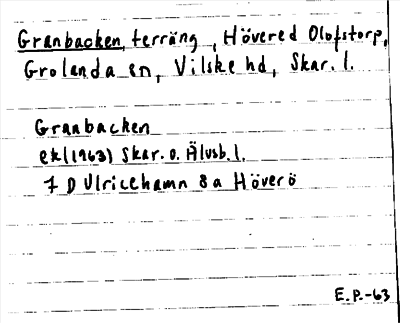 Granbacken, terräng, Hövered Olofstorp,
Grolanda sn, Vilske hd, Skar. l.
Granbacken
ek (1963) Skar. o. Älvsb. l.
7 D Ulricehamn 8 a Höverö
E. P. -63